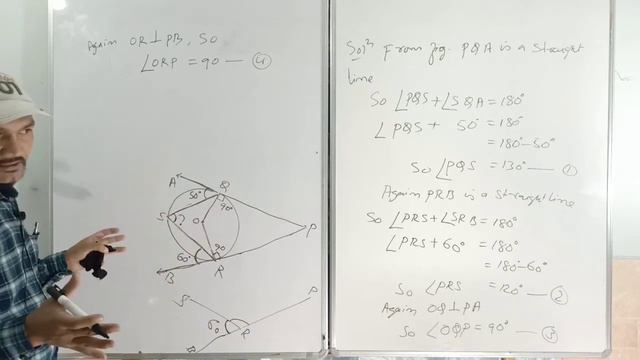 Again OR⊥PB, So
∠ORP = 90 — ④
A
Q
50°
90°
S
?
O
P
60°
90
B
R
S
P
60
R
B
Sol^n From fig. PQA is a Straight
line
So ∠PQS + ∠SQA = 180°
∠PQS + 50° = 180°
= 180° - 50°
So ∠PQS = 130° — ①
Again PRB is a Straight line
So ∠PRS + ∠SRB = 180°
∠PRS + 60° = 180°
= 180° - 60°
So ∠PRS = 120° — ②
Again OQ⊥PA
So ∠OQP = 90° — ③